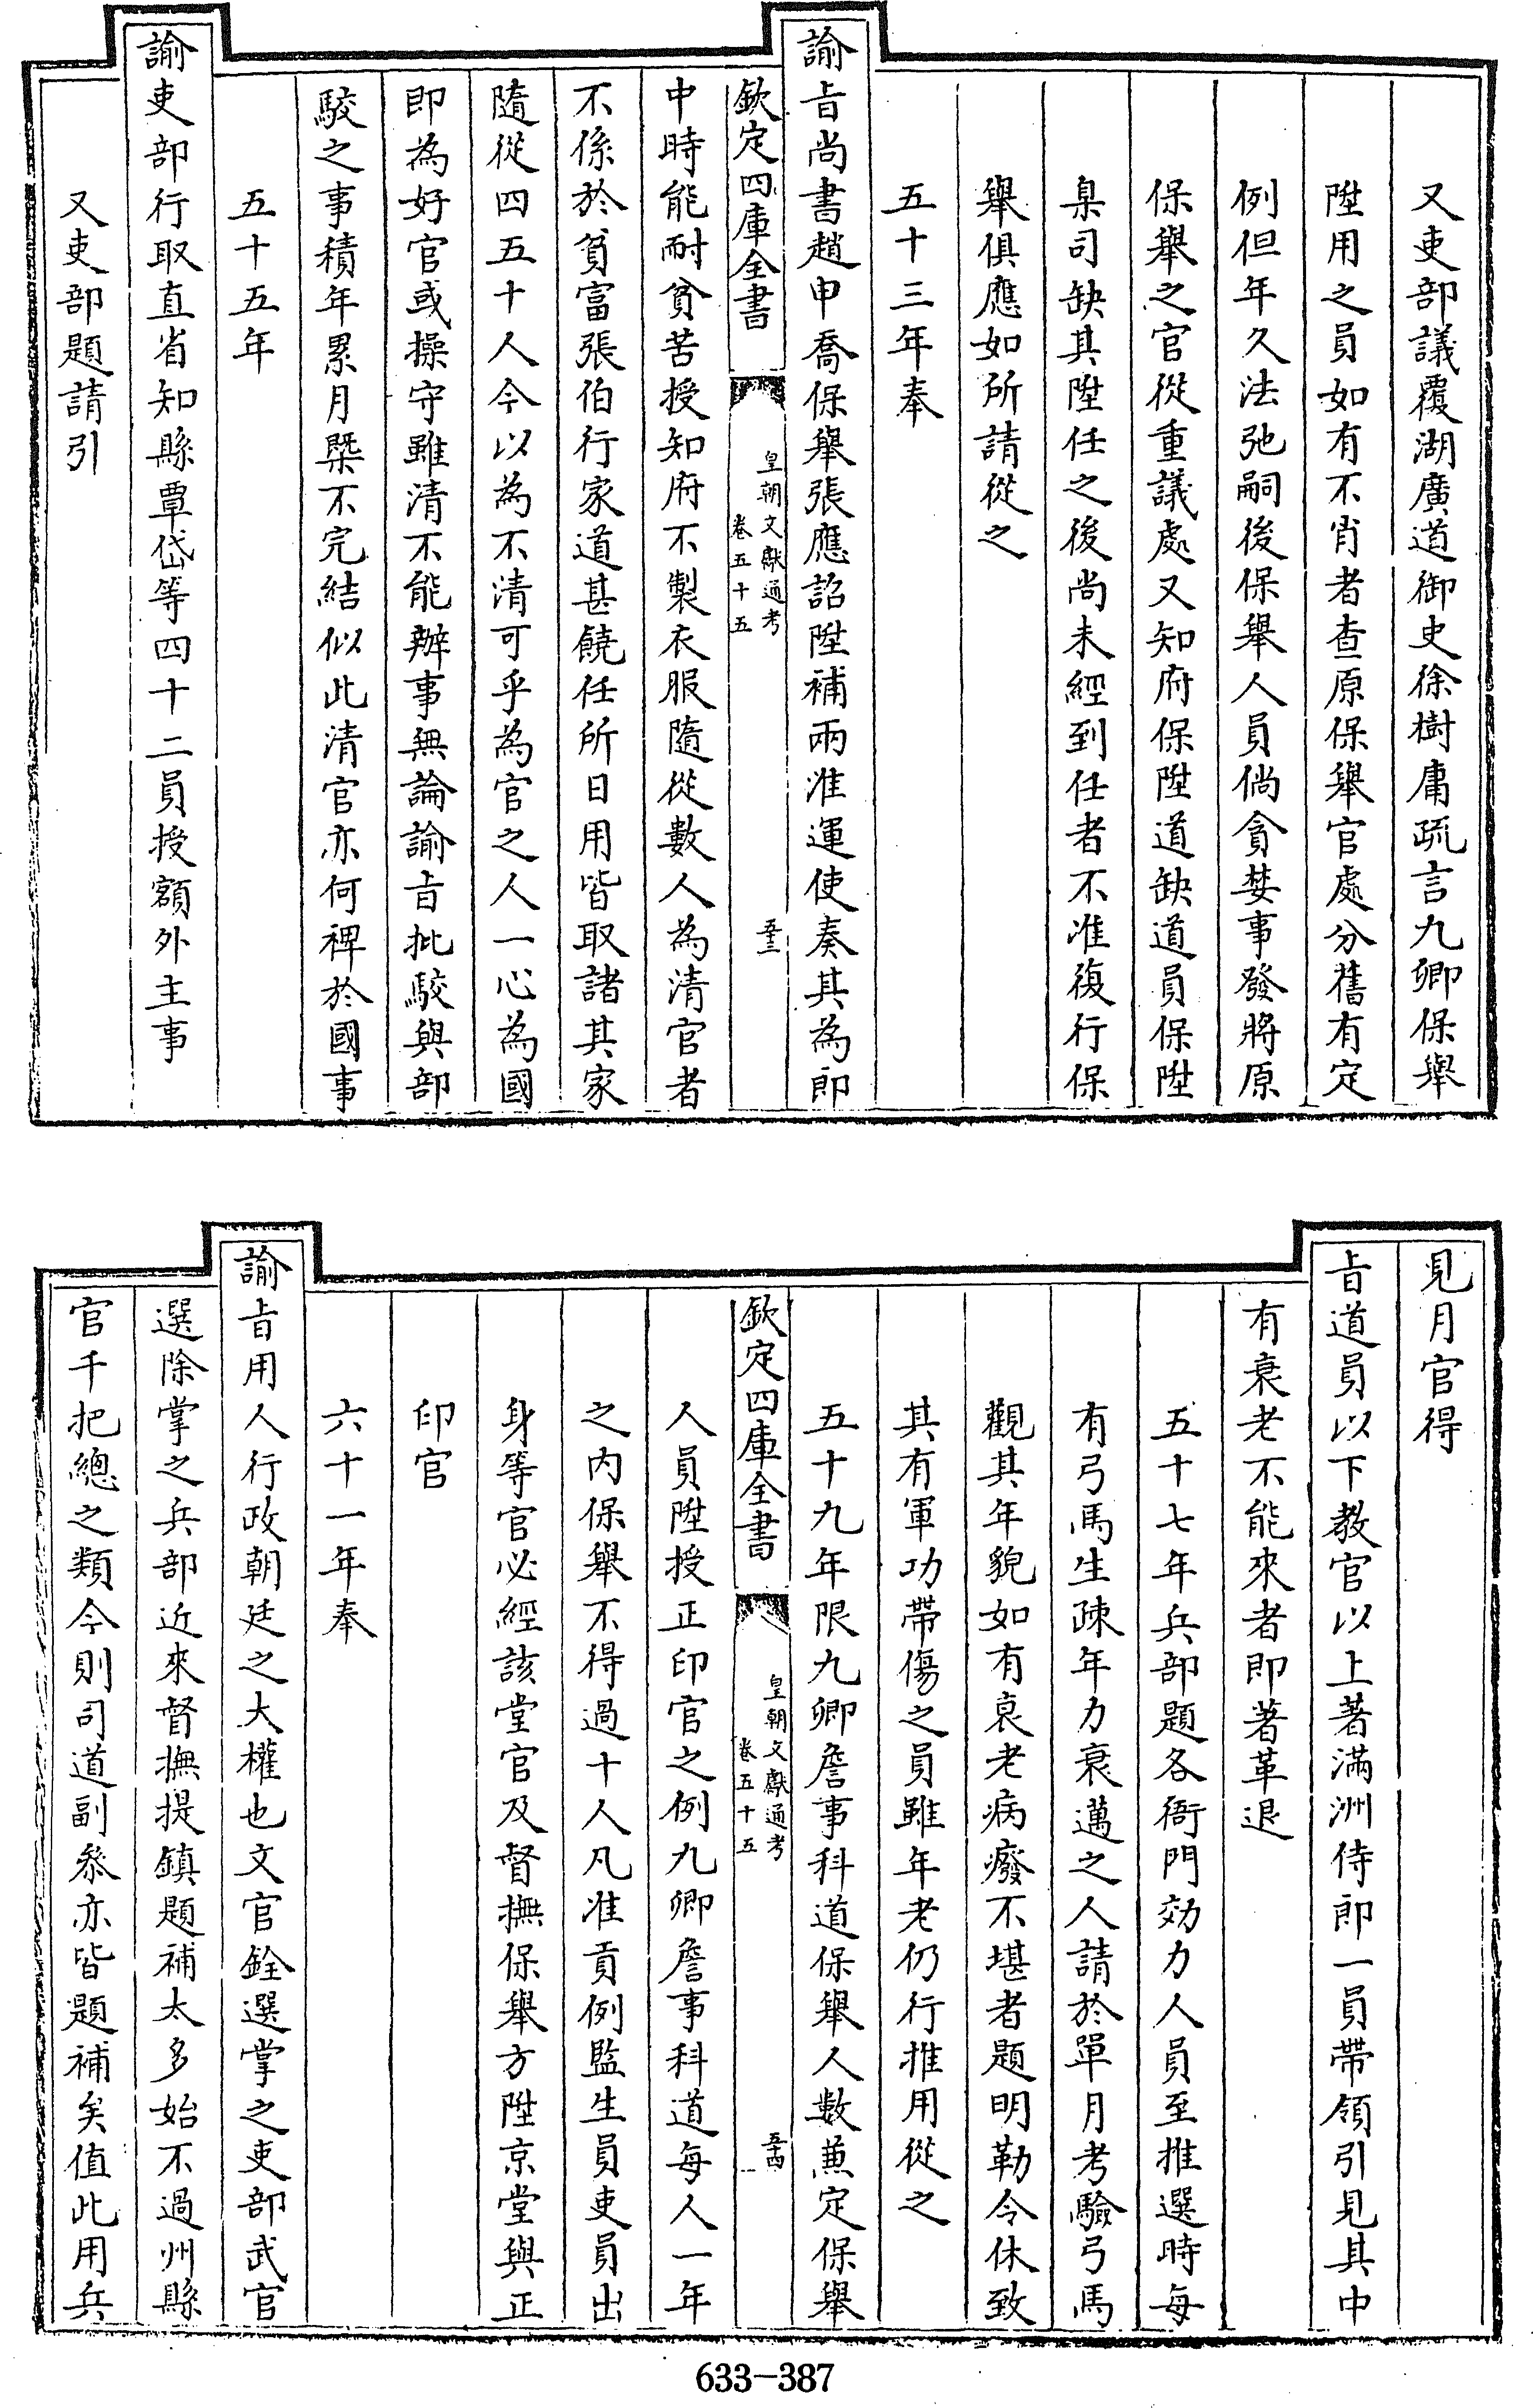 又吏部議覆湖廣道御史徐樹庸疏言九卿保舉
陞用之員如有不肖者查原保舉官處分舊有定
例但年久法弛嗣後保舉人員倘貪婪事發將原
保舉之官從重議處又知府保陞道缺道員保陞
臬司缺其陞任之後尚未經到任者不准復行保
舉俱應如所請從之
五十三年奉
諭旨尚書趙申喬保舉張應詔陞補兩淮運使奏其為郎
欽定四庫全書
皇朝文獻通考
卷五十五
五十三
中時能耐貧苦授知府不製衣服隨從數人為清官者
不係於貧富張伯行家道甚饒任所日用皆取諸其家
隨從四五十人今以為不清可乎為官之人一心為國
即為好官或操守雖清不能辦事無論諭旨批駮與部
駮之事積年累月槩不完結似此清官亦何裨於國事
五十五年
諭吏部行取直省知縣覃岱等四十二員授額外主事
又吏部題請引
見月官得
旨道員以下教官以上著滿洲侍郎一員帶領引見其中
有衰老不能來者即著革退
五十七年兵部題各衙門効力人員至推選時每
有弓馬生疎年力衰邁之人請於單月考驗弓馬
觀其年貌如有衰老病癈不堪者題明勒令休致
其有軍功帶傷之員雖年老仍行推用從之
五十九年限九卿詹事科道保舉人數兼定保舉
欽定四庫全書
皇朝文獻通考
卷五十五
五十四
人員陞授正印官之例九卿詹事科道每人一年
之内保舉不得過十人凡准貢例監生員吏員出
身等官必經該堂官及督撫保舉方陞京堂與正
印官
六十一年奉
諭旨用人行政朝廷之大權也文官銓選掌之吏部武官
選除掌之兵部近來督撫提鎮題補太多始不過州縣
官千把總之類今則司道副叅亦皆題補矣值此用兵
633-387